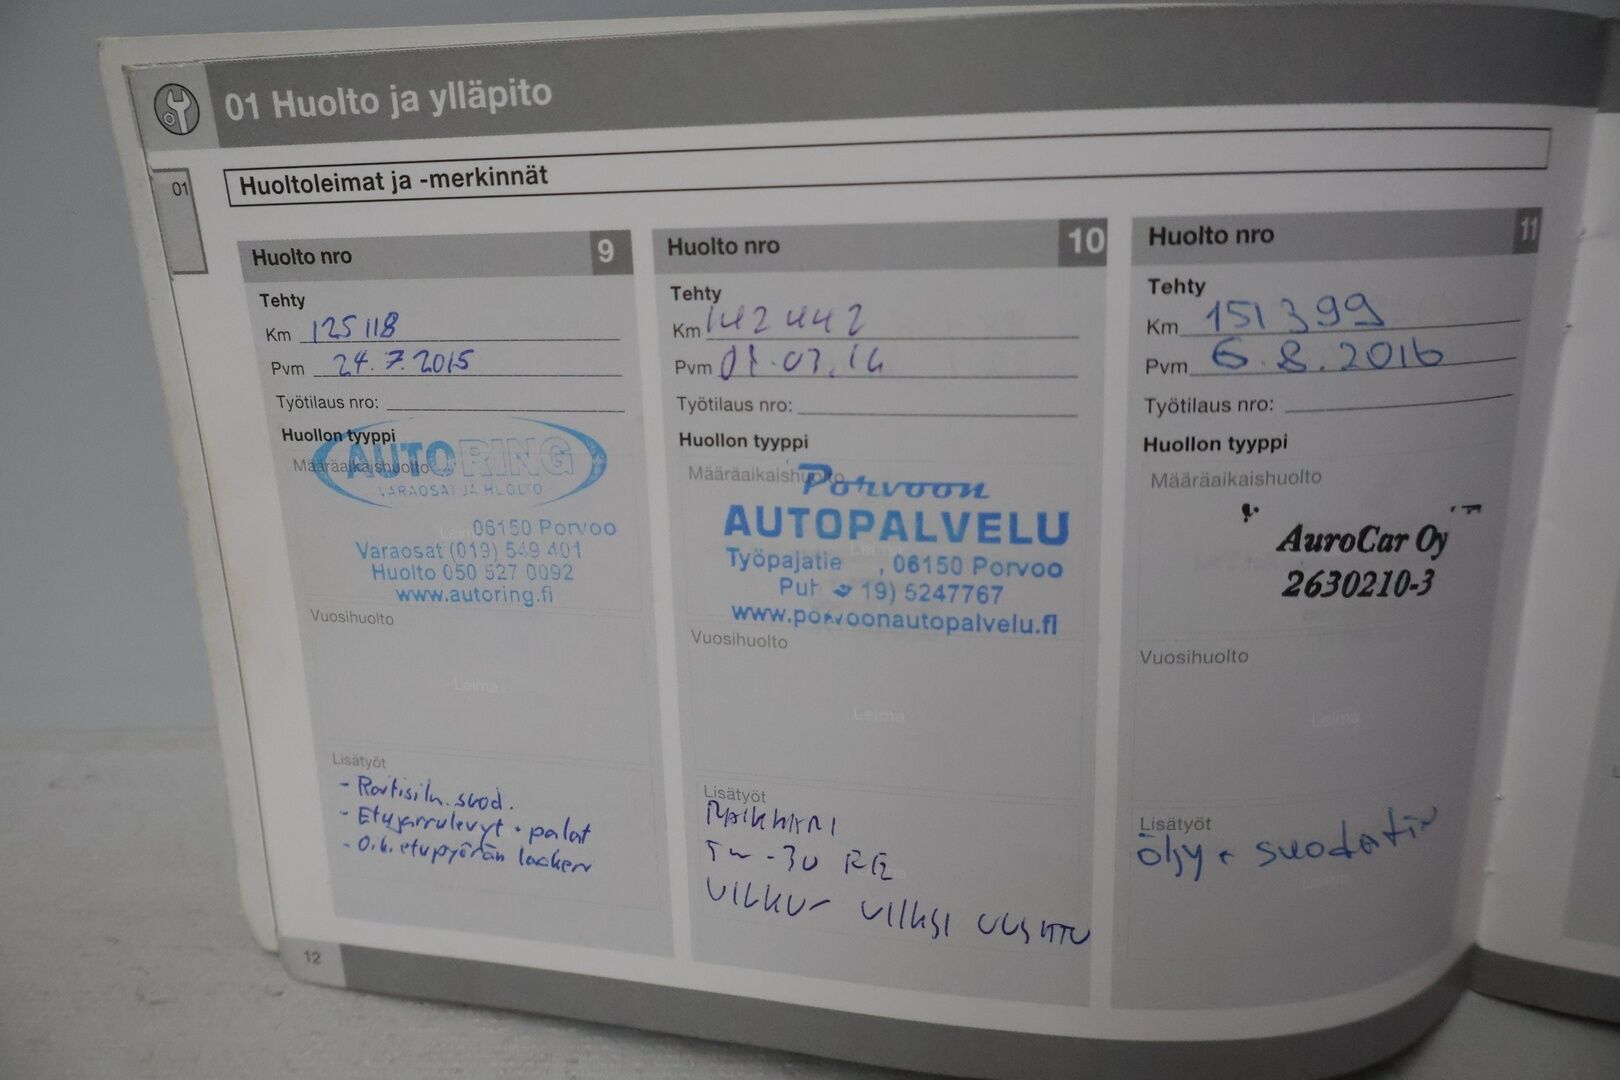 01 Huolto ja ylläpito
01
Huoltoleimat ja -merkinnät
Huolto nro 9
Tehty
Km 125 118
Pvm 24.7.2015
Työtilaus nro:
Huollon tyyppi
Määräaikaishuolto
AUTORING
VARAOSAT JA HUOLTO
06150 Porvoo
Varaosat (019) 549 401
Huolto 050 527 0092
www.autoring.fi
Vuosihuolto
Leima
Lisätyöt
- Raitisilm. suod.
- Etujarrulevyt + palat
- O.k. etupyörän laakeri
12
Huolto nro 10
Tehty
Km 142 442
Pvm
Työtilaus nro:
Huollon tyyppi
Määräaikaishuolto
Porvoon
AUTOPALVELU
Leima
Työpajatie , 06150 Porvoo
19) 5247767
www.porvoonautopalvelu.fi
Vuosihuolto
Leima
Lisätyöt
5W-30
UUSITTU
Huolto nro 11
Tehty
Km 151 399
Pvm 6.8.2016
Työtilaus nro:
Huollon tyyppi
Määräaikaishuolto
AuroCar Oy
2630210-3
Vuosihuolto
Leima
Lisätyöt
öljy + suodatin
Leima